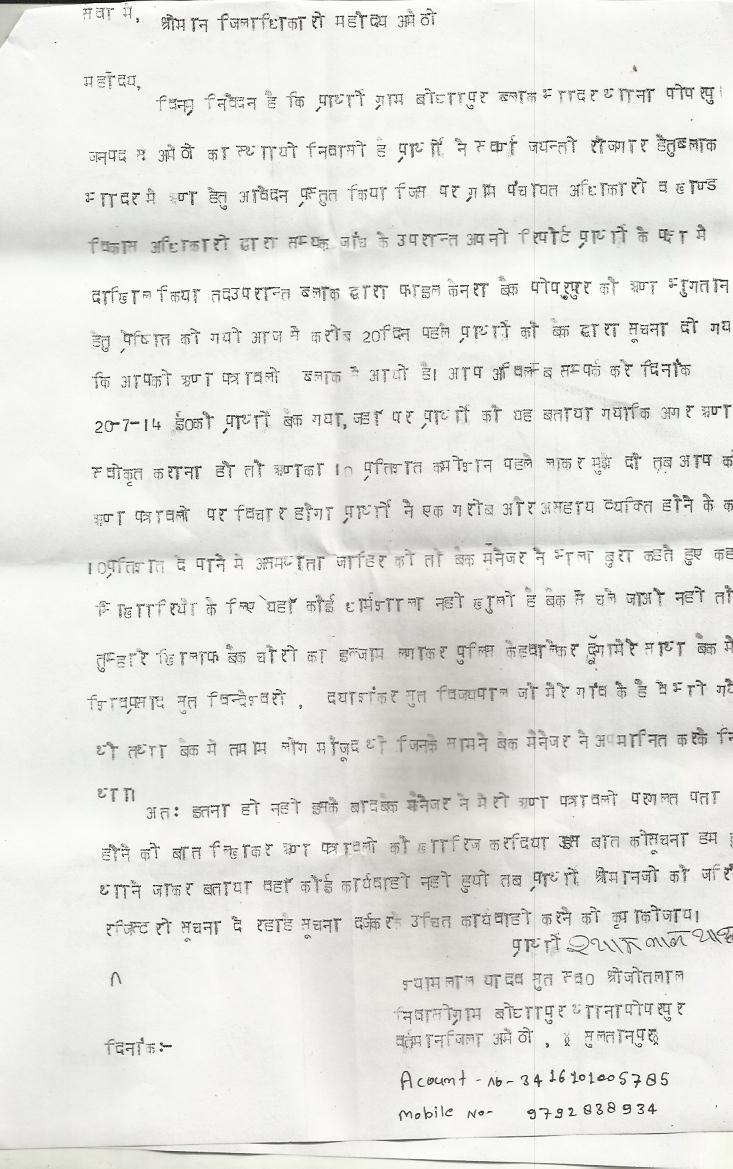 सेवा में, श्रीमान जिलाधिकारी महोदय अमेठी
महोदय,
विनम्र निवेदन है कि प्रार्थी ग्राम बोधापुर ब्लाक भादर थाना पीपरपु
जनपद अमेठी का स्थायी निवासी है प्रार्थी ने स्वर्ण जयन्ती रोजगार हेतु ब्लाक
भादर मे ऋण हेतु आवेदन प्रस्तुत किया जिस पर ग्राम पंचायत अधिकारी व खण्ड
विकास अधिकारी द्वारा सम्यक जांच के उपरान्त अपनी रिपोर्ट प्रार्थी के पक्ष मे
दाखिल किया तदउपरान्त ब्लाक द्वारा फाइल केनरा बैंक पीपरपुर को ऋण भुगतान
हेतु प्रेषित की गयी आज से करीब 20दिन पहले प्रार्थी को बैंक द्वारा सूचना दी गय
कि आपकी ऋण पत्रावली ब्लाक से आयी है। आप अविलम्ब सम्पर्क करे दिनांक
20-7-14 ई0को प्रार्थी बैंक गया, जहा पर प्रार्थी को यह बताया गयाकि अगर ऋण
स्वीकृत कराना हो तो ऋणका 10 प्रतिशत कमीशन पहले लाकर मुझे दो तब आप क
ऋण पत्रावली पर विचार होगा प्रार्थी ने एक गरीब और असहाय व्यक्ति होने के क
10प्रतिशत दे पाने मे असमर्थता जाहिर की तो बैंक मैनेजर ने भला बुरा कहते हुए कह
भिखारियो के लिए यहाँ कोई धर्मशाला नही खुली है बैंक से चले जाओ नही तो
तुम्हारे खिलाफ बैंक चोरी का इल्जाम लगाकर पुलिस के हवाले कर दूँगा मेरे साथ बैंक मे
शिवप्रसाद सुत विन्देश्वरी , दयाशंकर सुत विजयपाल जो मेरे गांव के है वे भी गये
थे तथा बैंक मे तमाम लोग मौजूद थे जिनके सामने बैंक मैनेजर ने अपमानित करके नि
था।
अत: इतना ही नही इसके बाद बैंक मैनेजर ने मेरी ऋण पत्रावली पर गलत पता
होने की बात लिखकर ऋण पत्रावली को खारिज कर दिया इस बात की सूचना हम
थाने जाकर बताया वहाँ कोई कार्यवाही नही हुयी तब प्रार्थी श्रीमानजी को जरि
रजिस्टरी सूचना दे रहा है सूचना दर्ज करके उचित कार्यवाही करने की कृपा की जाय।
प्रार्थी श्याम लाल याद
श्यामलाल यादव सुत स्व0 श्रीजीतलाल
निवासीग्राम बोधापुर थानापीपरपुर
वर्तमानजिला अमेठी , सुलतानपुर
दिनांक:-
Acount - No- 3416101005785
Mobile No- 9792838934